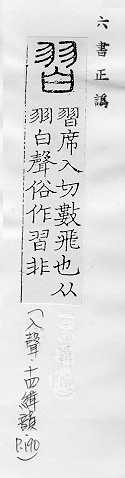 六書正譌
習
習席入切數飛也从
羽白聲俗作習非
(入聲·十四緝韻 P.190)